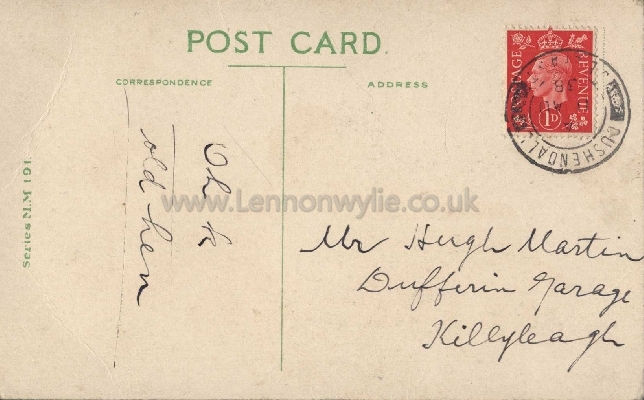 POST CARD.
CORRESPONDENCE
ADDRESS
POSTAGE REVENUE
1D
CUSHENDALL
Oh
old hen
Mr Hugh Martin
Dufferin Garage
Killyleagh
Series M.M 191
www.Lennonwylie.co.uk